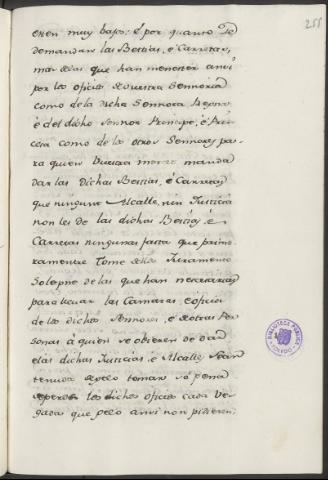 251
exen muy bajos: é por quanto se
demandan las Bestias, é Carretas,
mas delas que han menester ansi
por los oficios de Vuestra Sennoria
como de la dicha Sennora Reyna
é del dicho Sennor Principe, é Prin
cesa como de los otros Sennores pa-
ra quien Vuestra merced manda
dar las Dichas Bestias, é Carretas
que ninguna Alcalle, nin Justicia
non le dé las dichas Bestias, é
Carretas ningunas fasta que primo
ramente Tome dellos Juramento
Solepne de las que han necesarias
para llevar las Camaras, é oficios
de los dichos Sennores, é de otras Per
sonas á quien se obieren de dar
é las dichas Justicias, é Alcalles sean
tenudos de lo tomar só pena
de perder los dichos oficios cada ve-
gada que pelo ansi non pidieren;
BIBLIOTECA PUBLICA
TOLEDO